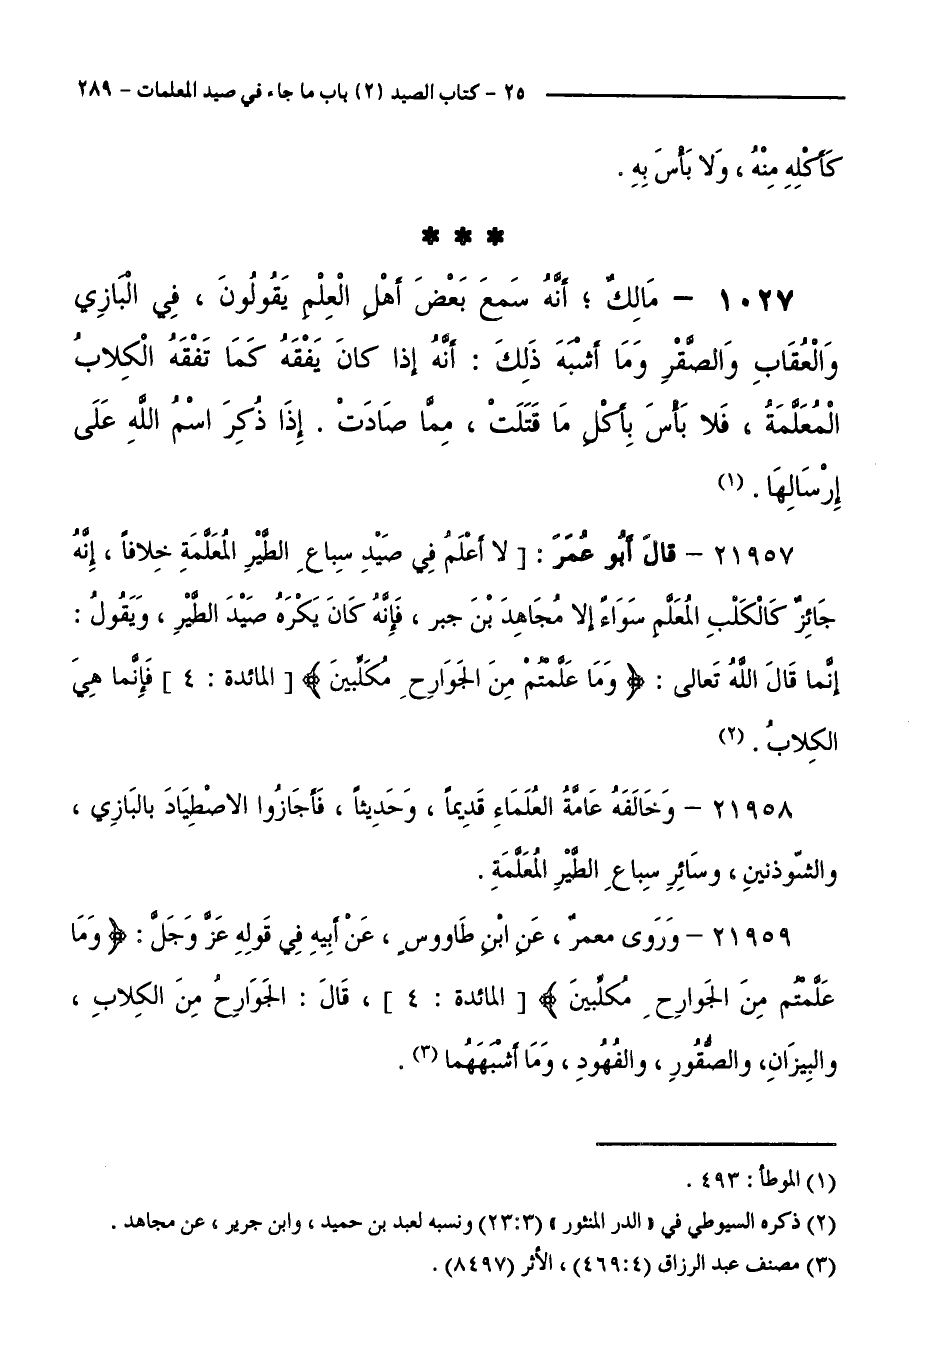 ٢٥ - كتاب الصيد (٢) باب ما جاء في صيد المعلمات - ٢٨٩
كَأَكْلِهِ مِنْهُ ، وَلا بَأْسَ بِهِ .
* * *
١٠٢٧ - مَالِكٌ ؛ أَنَّهُ سَمِعَ بَعْضَ أَهْلِ الْعِلْمِ يَقُولُونَ ، فِي الْبَازِي
وَالْعُقَابِ وَالصَّقْرِ وَمَا أَشْبَهَ ذَلِكَ : أَنَّهُ إِذا كانَ يَفْقَهُ كَمَا تَفْقَهُ الْكِلابُ
الْمُعَلَّمَةُ ، فَلا بَأْسَ بِأَكْلِ مَا قَتَلَتْ ، مِمَّا صَادَتْ . إِذَا ذُكِرَ اسْمُ اللَّهِ عَلَى
إِرْسَالِهَا . (١)
٢١٩٥٧ - قالَ أَبُو عُمَرَ : [ لا أَعْلَمُ فِي صَيْدِ سِباعِ الطَّيْرِ المُعَلَّمَةِ خلافاً ، إِنَّهُ
جَائِزٌ كَالْكَلْبِ المُعَلَّمِ سَوَاءً إلا مُجَاهِدَ بْنَ جبر ، فَإِنَّهُ كَانَ يَكْرَهُ صَيْدَ الطَّيْرِ ، وَيَقُولُ :
إِنَّما قَالَ اللَّهُ تَعالى : ﴿ وَمَا عَلَّمْتُمْ مِنَ الجَوارِحِ مُكَلِّبينَ ﴾ [ المائدة : ٤ ] فَإِنَّما هِيَ
الكِلابُ . (٢)
٢١٩٥٨ - وَخَالَفَهُ عَامَّةُ العُلَمَاءِ قَدِيماً ، وَحَدِيثاً ، فَأَجَازُوا الاصْطِيَادَ بالبَازِي ،
والشّوذنينِ ، وسَائِرِ سِباعِ الطَّيْرِ المُعَلَّمَةِ .
٢١٩٥٩ - ورَوَى معمرٌ ، عَنِ ابْنِ طَاووسٍ ، عَنْ أَبِيهِ فِي قَولِهِ عَزَّ وَجَلَّ : ﴿ وَمَا
عَلَّمْتُم مِنَ الجَوارِحِ مُكلِّبينَ ﴾ [ المائدة : ٤ ] ، قَالَ : الجَوَارِحُ مِنَ الكِلابِ ،
والبِيزَانِ، والصُّقُورِ ، والفُهُودِ ، وَمَا أَشْبَهَهُما (٣) .
(١) الموطأ : ٤٩٣ .
(٢) ذكره السيوطي في « الدر المنثور » (٢٣:٣) ونسبه لعبد بن حميد ، وابن جرير ، عن مجاهد .
(٣) مصنف عبد الرزاق (٤٦٩:٤) ، الأثر (٨٤٩٧) .